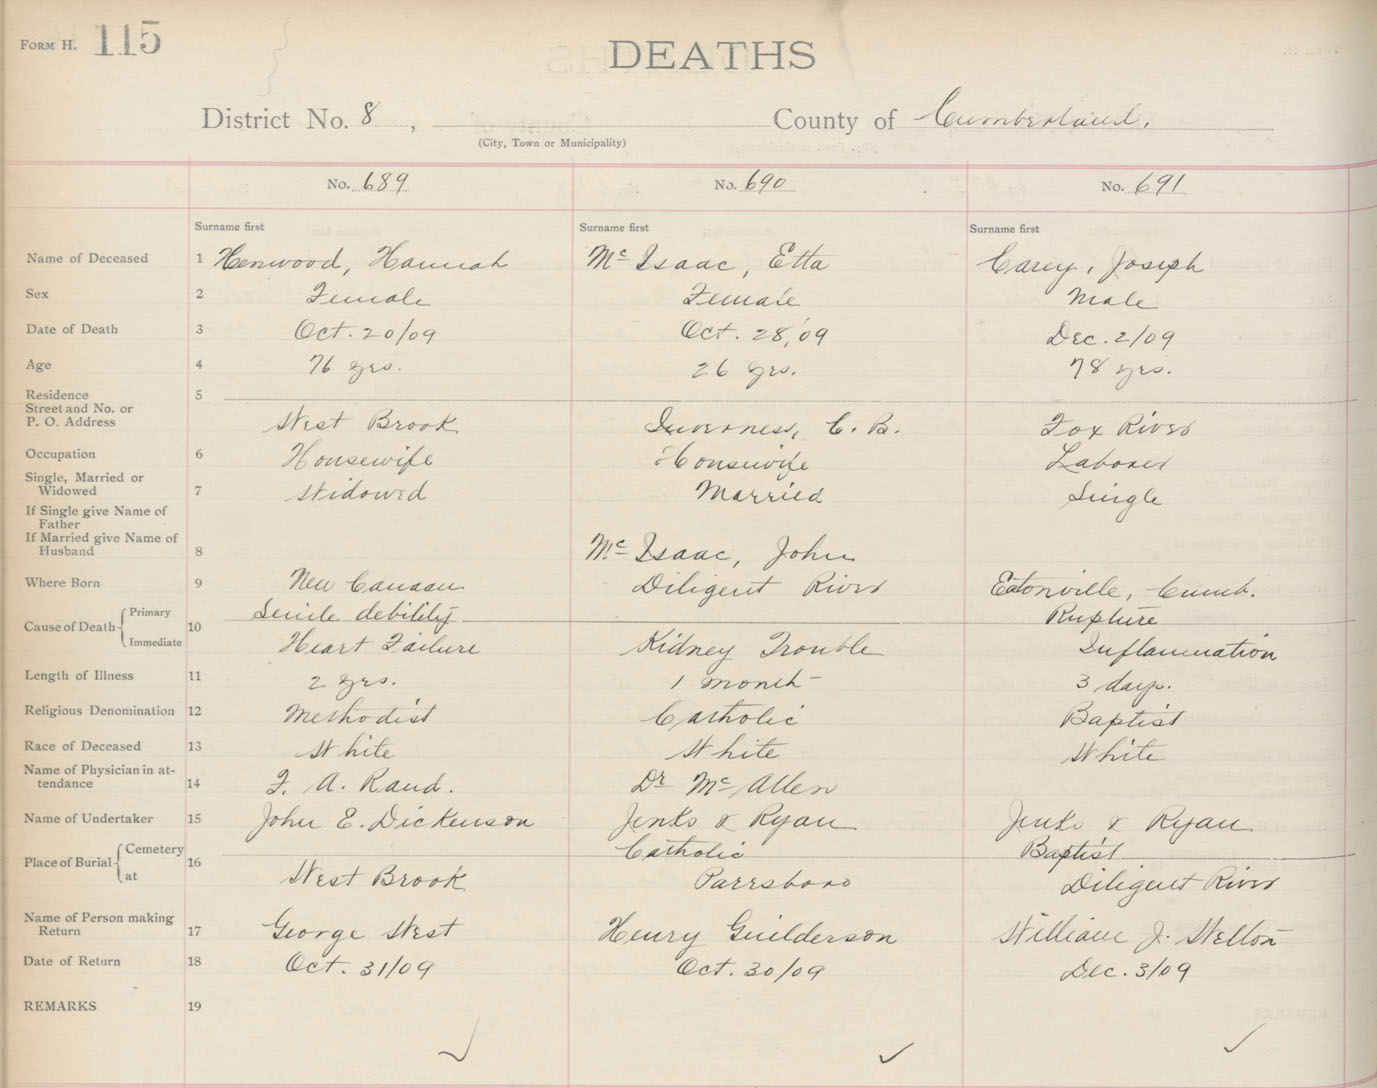 FORM H. 115
DEATHS
District No. 8, County of Cumberland.
(City, Town or Municipality)
No. 689 No. 690 No. 691
Surname first Surname first Surname first
Name of Deceased 1 Henwood, Hannah Mc Isaac, Etta Carey, Joseph
Sex 2 Female Female Male
Date of Death 3 Oct. 20/09 Oct. 28, '09 Dec. 2/09
Age 4 76 yrs. 26 yrs. 78 yrs.
Residence 5
Street and No. or
P. O. Address West Brook Inverness, C. B. Fox River
Occupation 6 Housewife Housewife Laborer
Single, Married or
Widowed 7 Widowed Married Single
If Single give Name of
Father
If Married give Name of
Husband 8 Mc Isaac, John
Where Born 9 New Canaan Diligent River Eatonville, Cumb.
Cause of Death 10
Primary Senile debility Rupture
Immediate Heart Failure Kidney Trouble Inflammation
Length of Illness 11 2 yrs. 1 month 3 days.
Religious Denomination 12 Methodist Catholic Baptist
Race of Deceased 13 White White White
Name of Physician in at-
tendance 14 F. A. Rand. Dr Mc Allen
Name of Undertaker 15 John E. Dickenson Jenks & Ryan Jenks & Ryan
Place of Burial 16
Cemetery Catholic Baptist
at West Brook Parrsboro Diligent River
Name of Person making
Return 17 George West Henry Guilderson William J. Welton
Date of Return 18 Oct. 31/09 Oct. 30/09 Dec. 3/09
REMARKS 19